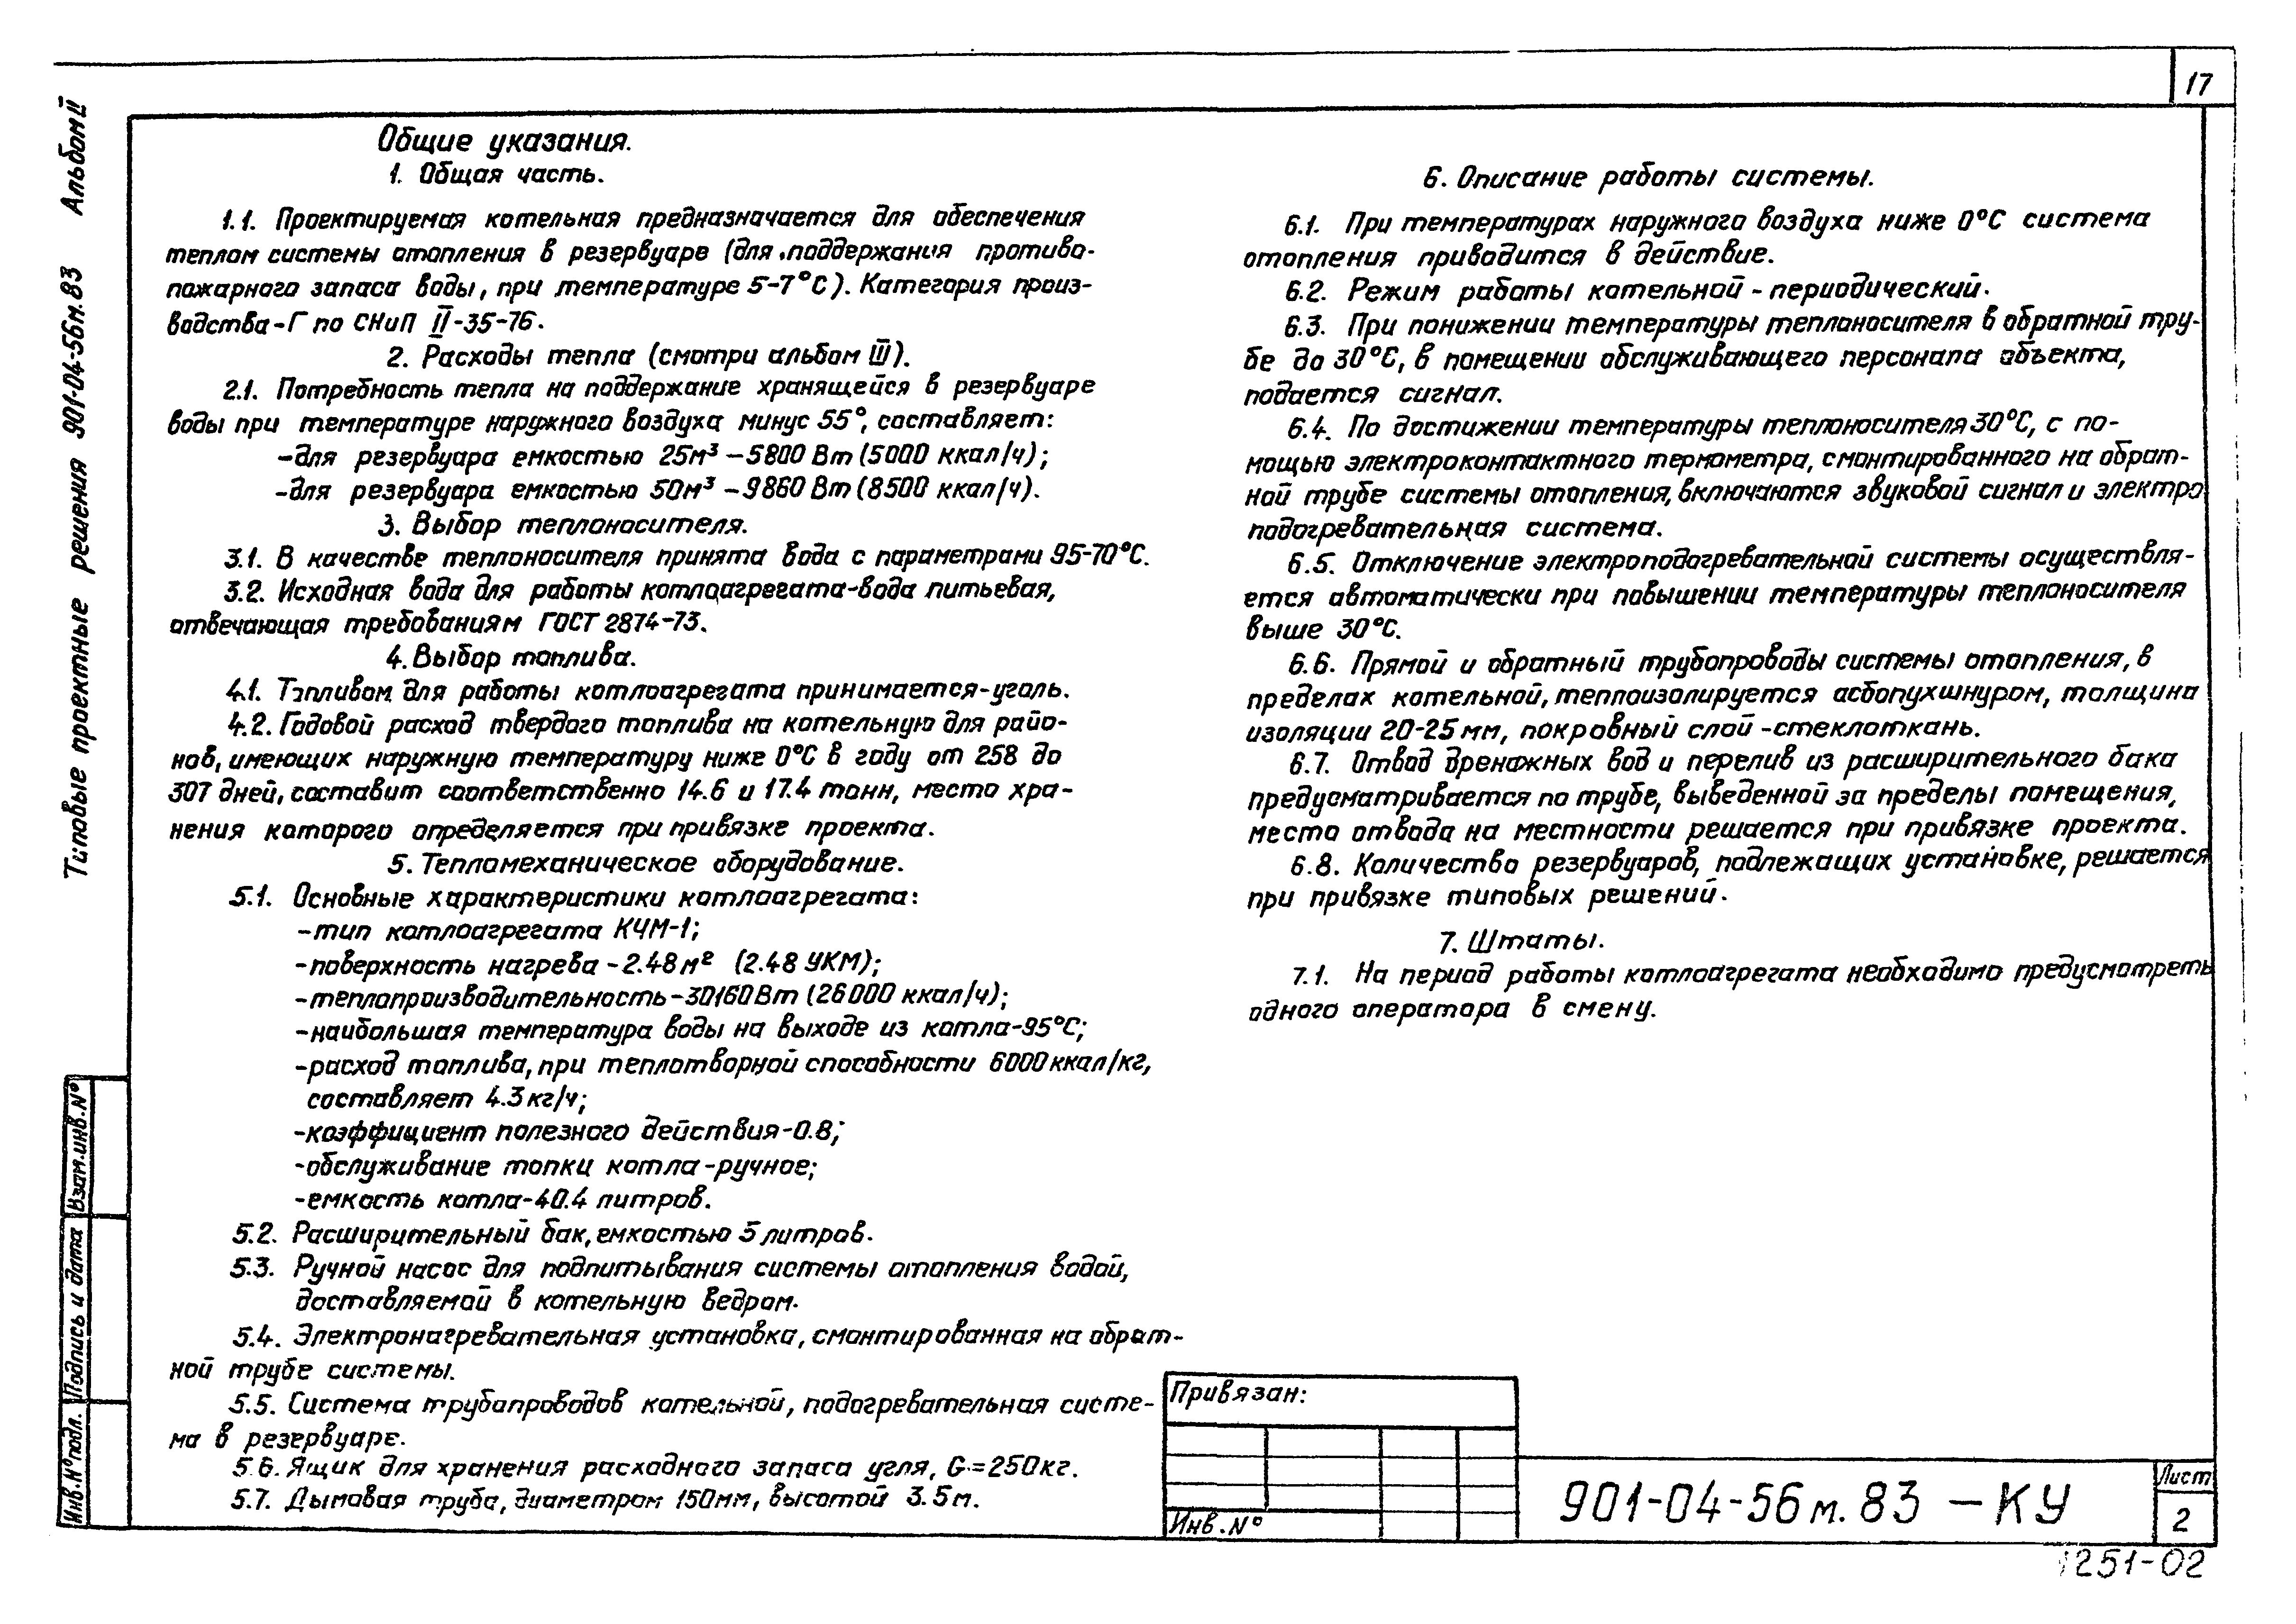 17
Общие указания.
1. Общая часть.
1.1. Проектируемая котельная предназначается для обеспечения
теплом системы отопления в резервуаре (для поддержания противо-
пожарного запаса воды, при температуре 5-7°С). Категория произ-
водства-Г по СНиП II-35-76.
2. Расходы тепла (смотри альбом III).
2.1. Потребность тепла на поддержание хранящейся в резервуаре
воды при температуре наружного воздуха минус 55°, составляет:
-для резервуара емкостью 25м³ -5800 Вт (5000 ккал/ч);
-для резервуара емкостью 50м³ -9860 Вт (8500 ккал/ч).
3. Выбор теплоносителя.
3.1. В качестве теплоносителя принята вода с параметрами 95-70°С.
3.2. Исходная вода для работы котлоагрегата-вода питьевая,
отвечающая требованиям ГОСТ 2874-73.
4. Выбор топлива.
4.1. Топливом для работы котлоагрегата принимается-уголь.
4.2. Годовой расход твердого топлива на котельную для райо-
нов, имеющих наружную температуру ниже 0°С в году от 258 до
307 дней, составит соответственно 14.6 и 17.4 тонн, место хра-
нения которого определяется при привязке проекта.
5. Тепломеханическое оборудование.
5.1. Основные характеристики котлоагрегата:
-тип котлоагрегата КЧМ-1;
-поверхность нагрева -2.48 м² (2.48 УКМ);
-теплопроизводительность-30160 Вт (26000 ккал/ч);
-наибольшая температура воды на выходе из котла-95°С;
-расход топлива, при теплотворной способности 6000 ккал/кг,
составляет 4.3 кг/ч;
-коэффициент полезного действия-0.8;
-обслуживание топки котла-ручное;
-емкость котла-40.4 литров.
5.2. Расширительный бак, емкостью 5 литров.
5.3. Ручной насос для подпитывания системы отопления водой,
доставляемой в котельную ведром.
5.4. Электронагревательная установка, смонтированная на обрат-
ной трубе системы.
5.5. Система трубопроводов котельной, подогревательная систе-
ма в резервуаре.
5.6. Ящик для хранения расходного запаса угля, G=250кг.
5.7. Дымовая труба, диаметром 150мм, высотой 3.5м.
6. Описание работы системы.
6.1. При температурах наружного воздуха ниже 0°С система
отопления приводится в действие.
6.2. Режим работы котельной - периодический.
6.3. При понижении температуры теплоносителя в обратной тру-
бе до 30°С, в помещении обслуживающего персонала объекта,
подается сигнал.
6.4. По достижении температуры теплоносителя 30°С, с по-
мощью электроконтактного термометра, смонтированного на обрат-
ной трубе системы отопления, включаются звуковой сигнал и электро
подогревательная система.
6.5. Отключение электроподогревательной системы осуществля-
ется автоматически при повышении температуры теплоносителя
выше 30°С.
6.6. Прямой и обратный трубопроводы системы отопления, в
пределах котельной, теплоизолируется асбопухшнуром, толщина
изоляции 20-25 мм, покровный слой -стеклоткань.
6.7. Отвод дренажных вод и перелив из расширительного бака
предусматривается по трубе, выведенной за пределы помещения,
место отвода на местности решается при привязке проекта.
6.8. Количество резервуаров, подлежащих установке, решается
при привязке типовых решений.
7. Штаты.
7.1. На период работы котлоагрегата необходимо предусмотреть
одного оператора в смену.
Типовые проектные решения 901-04-56м.83 Альбом II
Взам.инв.№
Подпись и дата
Инв.№подл.
Привязан:
Инв.№
901-04-56 м. 83 - КУ
Лист
2
1251-02